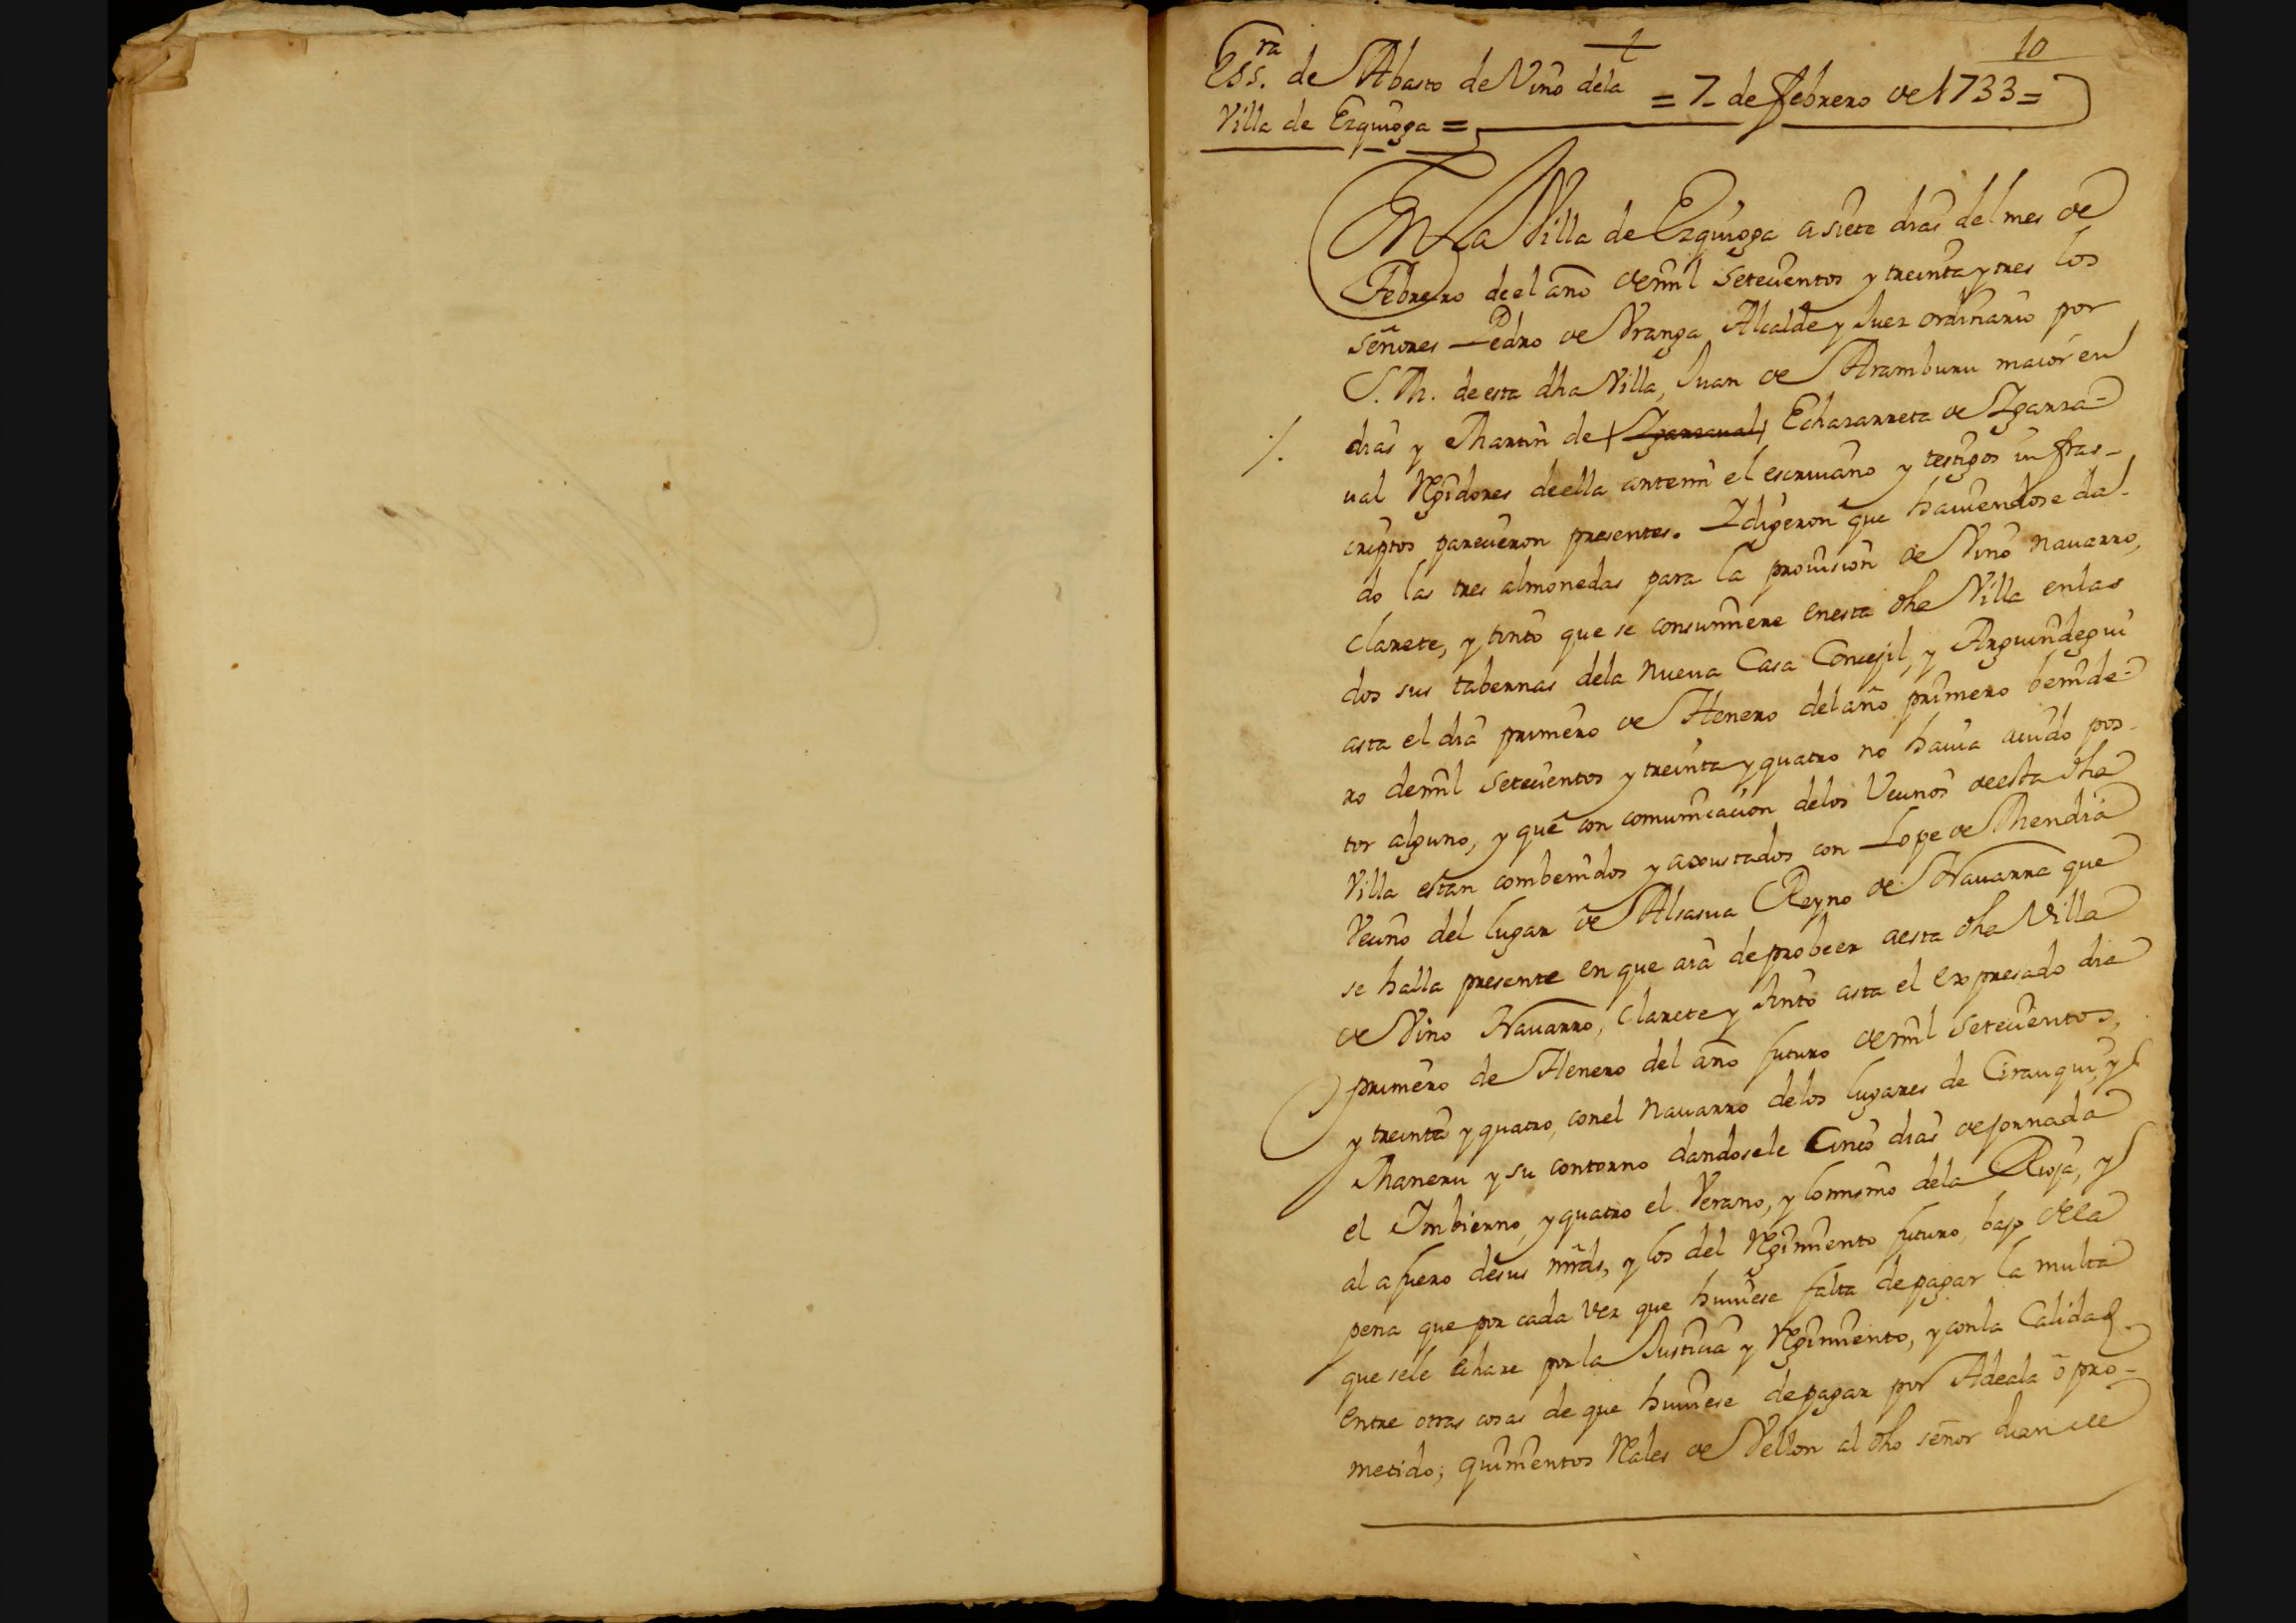 10
Ess.ra de Abasto de Vino dela
Villa de Ezquioga =
= 7 de febrero de 1733 =
En La Villa de Ezquioga a siete dias del mes de
Febrero de el año de mil setecientos y treinta y tres los
señores Pedro de Vranga Alcalde y Juez ordinario por
S. M. de esta dha Villa, Juan de Aramburu maior en
dias y Martin de Ygarzaual Echazarreta de Ygarza-
ual Regidores de ella ante mi el escriuano y testigos infras-
criptos parecieron presentes. Y digeron que hauiendose da-
do las tres almonedas para la prouision de Vino nauarro,
clarete, y tinto que se consumiere en esta dha Villa en las
dos sus tabernas dela nueua Casa Concejil, y Arguindegui
asta el dia primero de Henero del año primero benide-
ro de mil setecientos y treinta y quatro no hauia auido pos-
tor alguno, y que con comunicacion delos Vecinos de esta dha
Villa estan combenidos y axustados con Lope de Mendia
Vecino del lugar de Alsasua Reyno de Nauarra que
se halla presente en que aia de probeer a esta dha Villa
de Vino Nauarro, Clarete y tinto asta el expresado dia
primero de Henero del año futuro de mil setecientos,
y treinta y quatro, con el nauarro de los lugares de Cirauqui, y
Maneru y su contorno dandosele Cinco dias de jornada
el Imbierno, y quatro el Verano, y lo mismo dela Rioja, y
al afuero de sus mrds, y los del Regimiento futuro, bajo de la
pena que por cada vez que huuiese falta de pagar la multa
que sele echare por la Justicia y Regimiento, y con la Calidad
entre otras cosas de que huuiese de pagar por Adeala ó pro-
metido; quinientos Reales de Vellon al dho señor Juan de